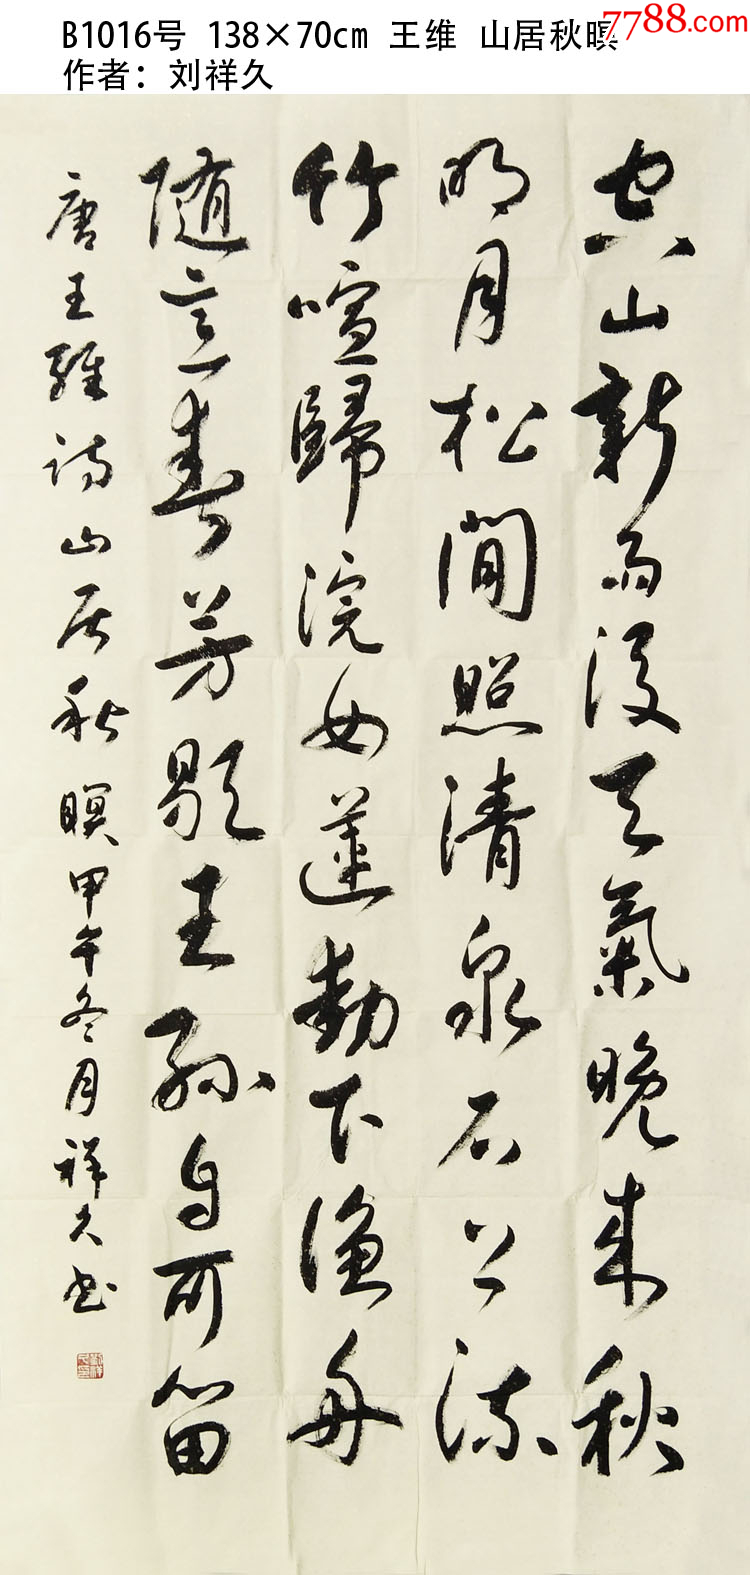 7788.com
B1016号 138×70cm 王维 山居秋暝
作者：刘祥久
空山新雨後天氣晚来秋
明月松間照清泉石上流
竹喧歸浣女蓮動下漁舟
随意春芳歇王孫自可留
唐王維詩山居秋暝甲午冬月祥久书